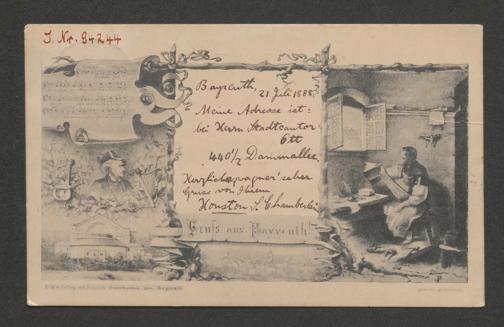 J. Nr. 94244
Bayreuth, 21 Juli 1888
Meine Adresse ist:
bei Herrn Stadtcantor
Ott
440 1/2 Dammallee
Herzlich wagner'scher
Gruss von Ihrem
Houston S Chamberlain
Gruss aus Bayreuth!